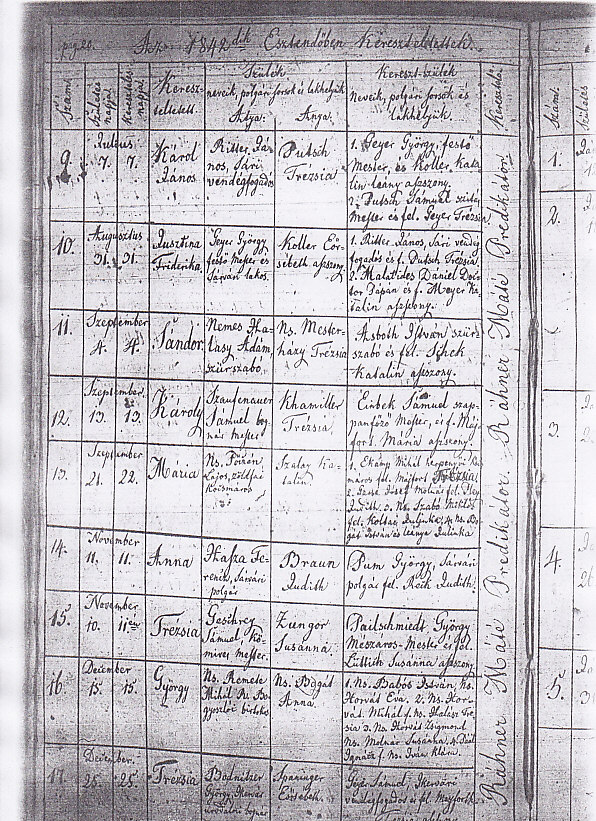 pag 20. Az 1842dik Esztendőben Kereszteltettek.
Szám.
születés napja.
keresztelés napja.
Kereszteltetett.
Szülék
neveik, polgári sorsok és lakhelyük
Atyja.
Anyja.
Kereszt-szülék
Neveik, polgári sorsok és lakhelyük.
Keresztelő
9.
Julius
7. 7.
Károl
János
Ritter János, Sári
vendégfogadós
Putsch
Trézsia
1. Geyer György, festő
Mester, és Koller Kata
lin leány asszony.
2. Putsch Sámuel
Mester és fel. Geyer Trézsia
10.
Augusztus
31. 31.
Jusztina
Friderika.
Geyer György
festő Mester és
Sárvári lakos.
Koller Er
sébeth asszony.
1. Ritter János, Sári vendég
fogadós és f. Putsch Trézsia.
2. Malatides Dániel Doc
tor Pápán és f. Meyer Ka
talin asszony.
11.
Szeptember
4. 4.
Sándor
Nemes Ha
lasy Ádám,
szűrszabó.
Ns. Mester-
házy Trézsia
Asboth István szűr-
szabó és fel. Schek
Katalin asszony.
12.
Szeptember
13. 13.
Károly
Kaufenauer
Sámuel bog
nár Mester
Khamiller
Trézsia.
Einbek Sámuel szap-
panfőző Mester, és f. Maj
fort Mária asszony.
13.
Szeptember
21. 22.
Mária
Ns.
Lajos,
Korcsmáros
Szalay Ka-
talin.
14.
November
11. 11.
Anna
Hasza Fe-
rentz, Sárvári
polgár
Braun
Judith
Pum György, Sárvári
polgár fel. Reik Judith.
15.
November
10. 11en
Trézsia
Geschrey
Sámuel, Kő-
míves Mester.
Zungor
Susanna
Pailschmiedt György
Mészáros-Mester és fel.
Littich Susanna asszony
16
December
15. 15.
György
Ns. Remete
Mihál
birtokos
Ns. Bogát
Anna.
1. Ns. Babós István, Ns.
Horvát Éva, 2. Ns. Hor-
vát Mihál f. Ns. Halász Tré
sia 3. Ns. Horvát Zsigmond
Ns. Molnár Susánna, 4.
Ignácz f. Ns. Iván Klára.
17.
December.
25. 25.
Trézsia
Bodnitzer
György, Ikervár
Spaninger
Ersébeth
Geyer Sámuel Ikervári
vendégfogadós és fel. Majforth
Ráhner Máté Predikátor. Ráhner Máté Predikátor
Szám.
Születés
1.
2.
3.
4.
5.